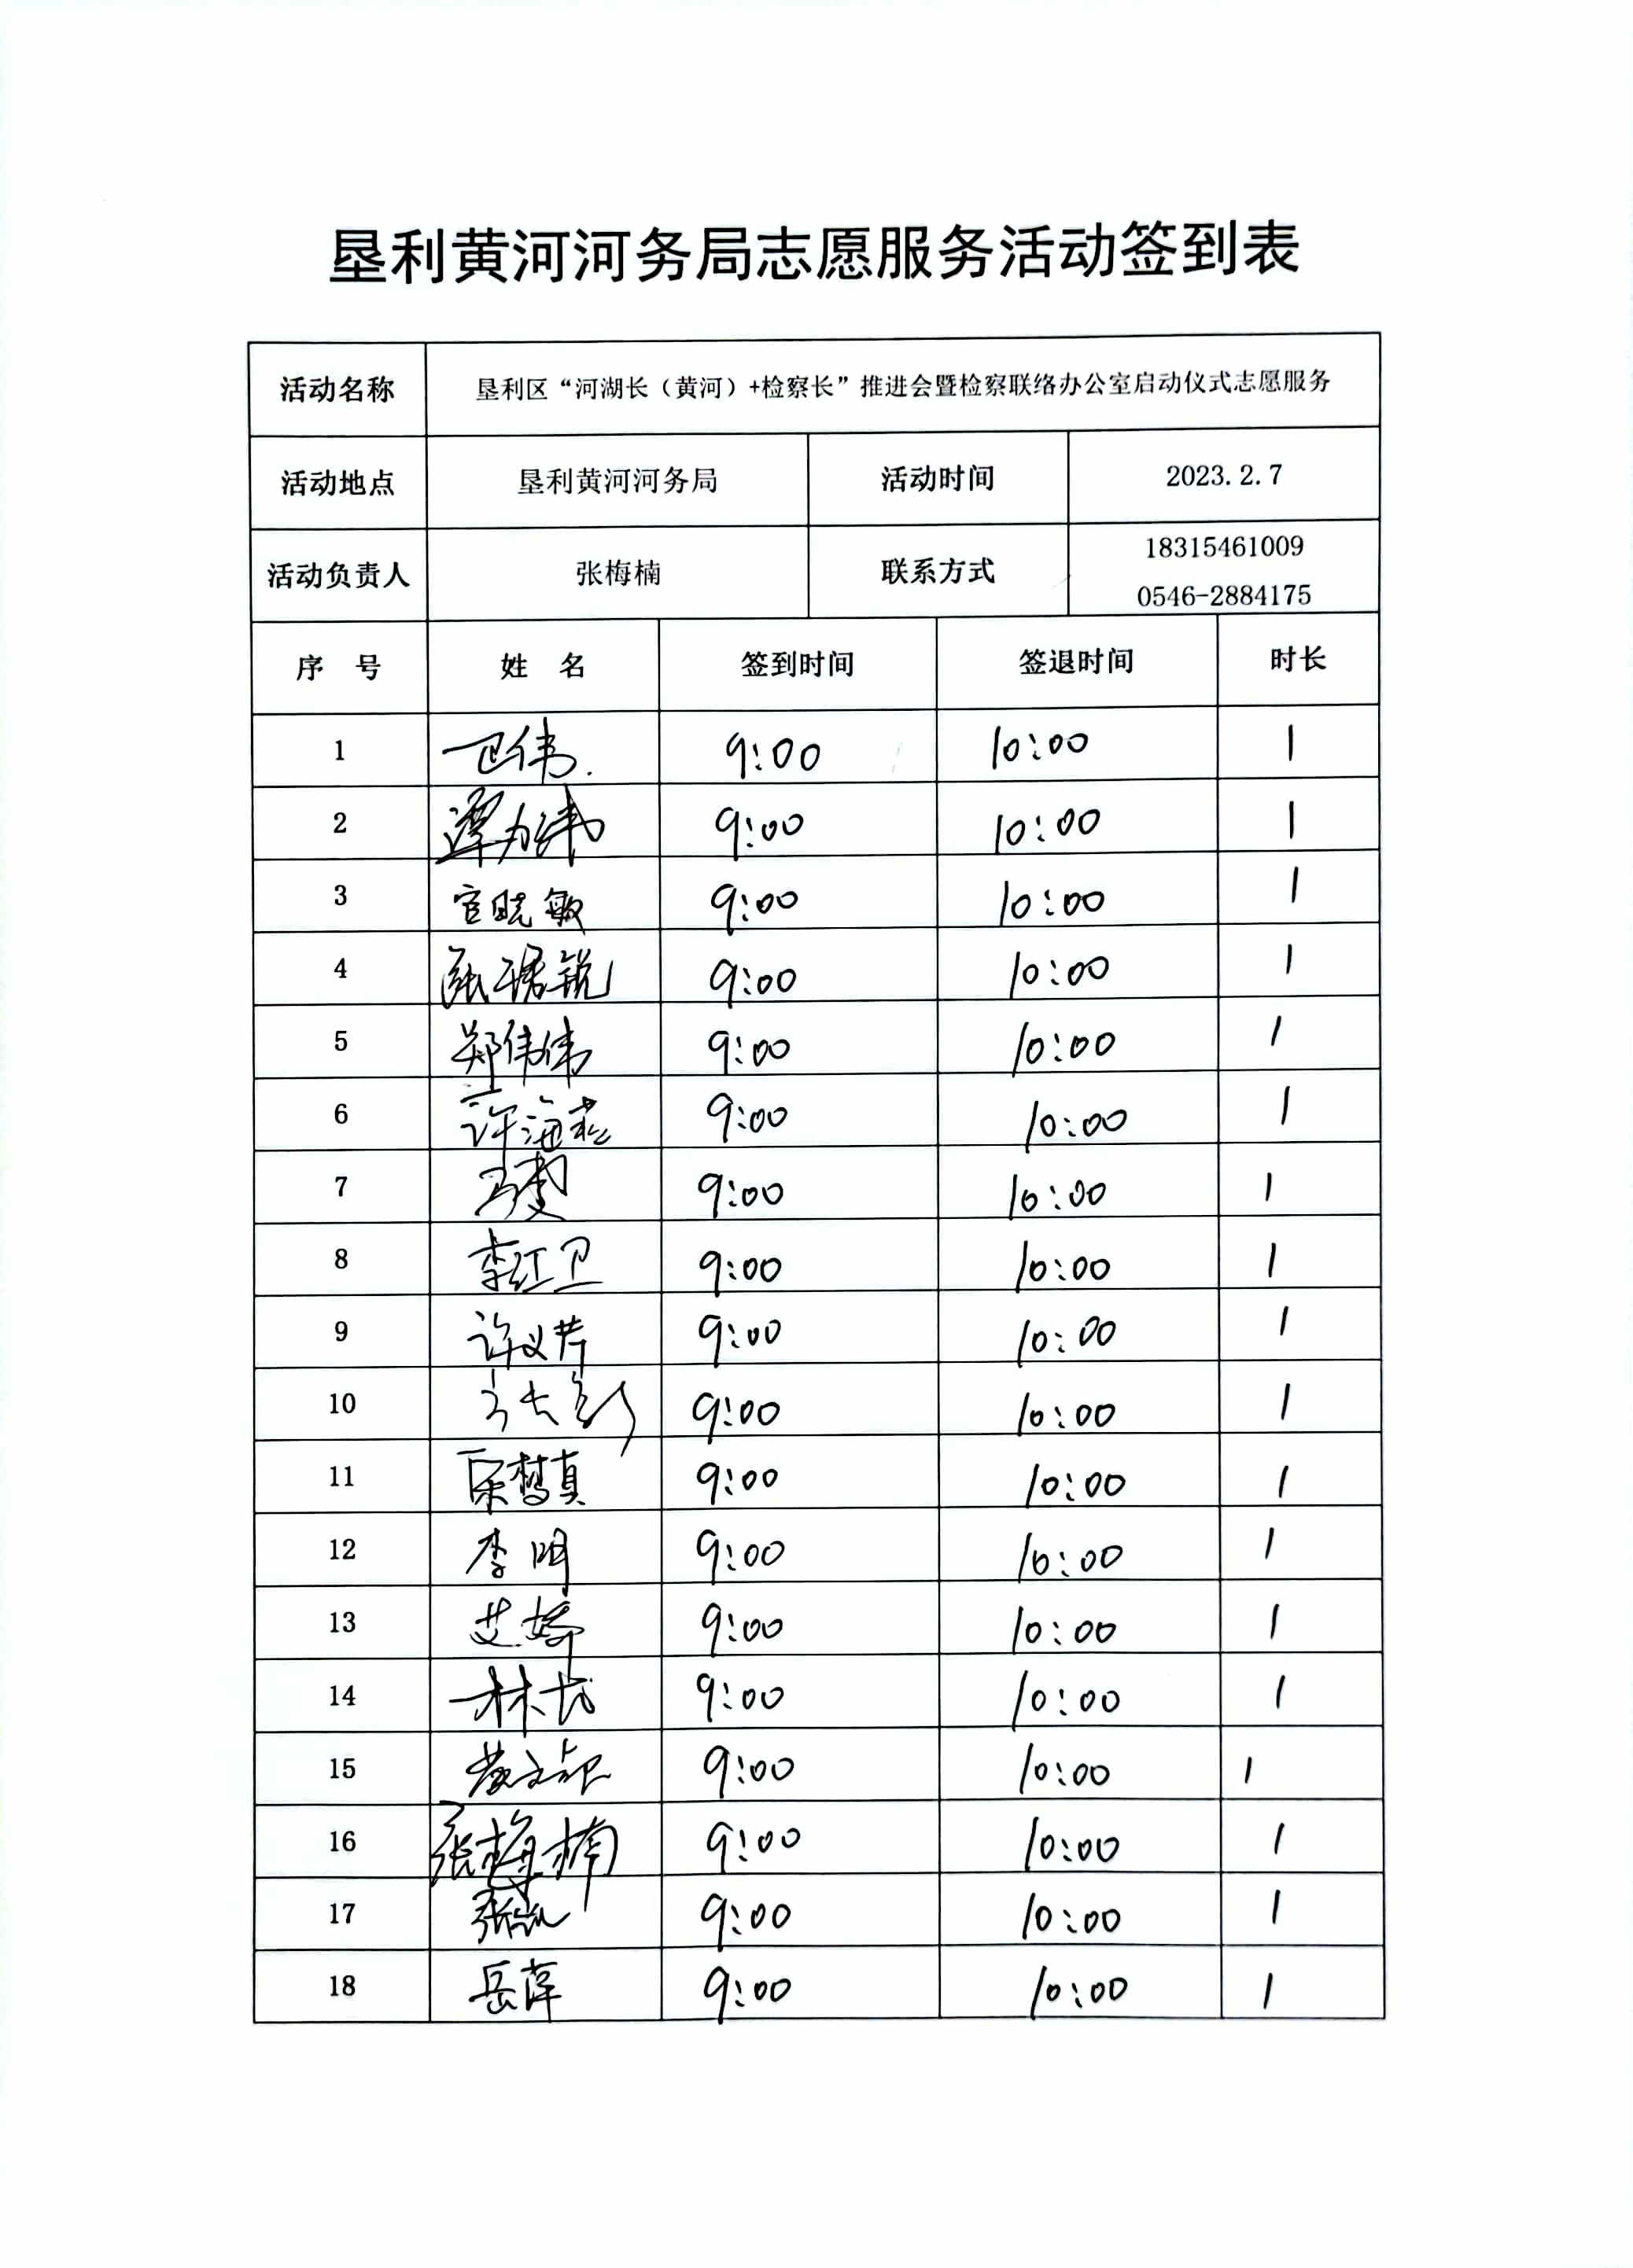 垦利黄河河务局志愿服务活动签到表
活动名称 垦利区“河湖长（黄河）+检察长”推进会暨检察联络办公室启动仪式志愿服务
活动地点 垦利黄河河务局 活动时间 2023.2.7
活动负责人 张梅楠 联系方式 18315461009
0546-2884175
序 号 姓 名 签到时间 签退时间 时长
1 伟 9:00 10:00 1
2 谭 9:00 10:00 1
3 官晓敏 9:00 10:00 1
4 张珺锐 9:00 10:00 1
5 郑伟伟 9:00 10:00 1
6 许海燕 9:00 10:00 1
7 9:00 10:00 1
8 李红卫 9:00 10:00 1
9 许义芹 9:00 10:00 1
10 9:00 10:00 1
11 梦真 9:00 10:00 1
12 李明 9:00 10:00 1
13 艾婷 9:00 10:00 1
14 林 9:00 10:00 1
15 9:00 10:00 1
16 张梅楠 9:00 10:00 1
17 张凯 9:00 10:00 1
18 岳萍 9:00 10:00 1